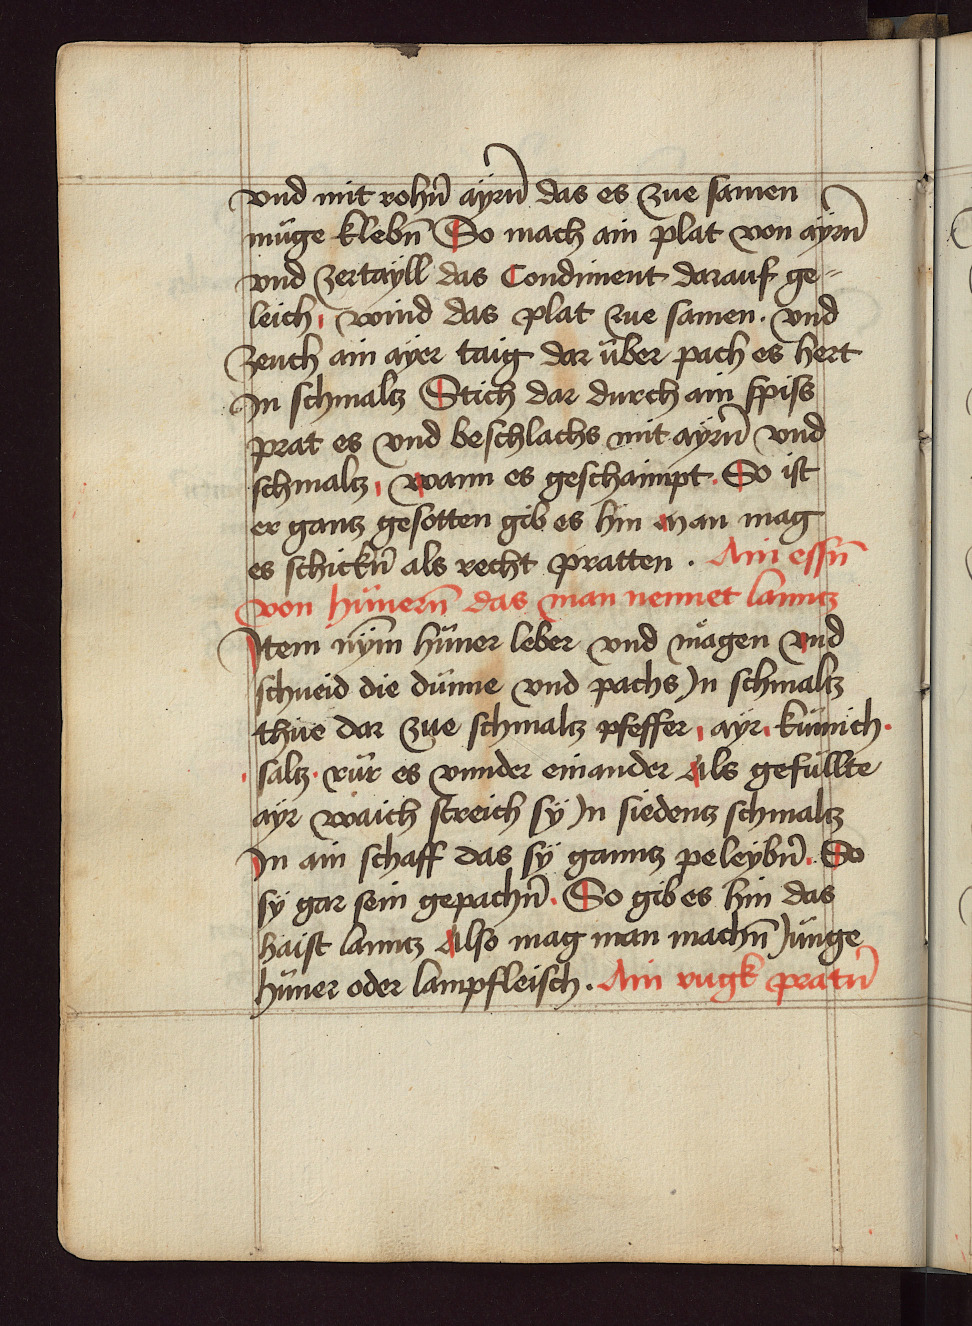 vnd mit rohn̄ aÿrn̄ das es zue samen
müge klebn̄ So mach ain plat von aÿrn̄
vnd zertaÿll das Condiment darauf ge-
leich, wind das plat zue samen. vnd
zeuch ain ayer taig dar über pach es hert
In schmaltz Stich dar durch ain spiss
prat es vnd beschlachs mit aÿrn̄ vnd
schmaltz, wann es geschaimpt. So ist
er gantz gesotten gib es hin man mag
es schickn̄ als recht pratten. Ain essn̄
von hünern̄ das man nennet lanntz
Item nÿm hüner leber vnd mägen vnd
schneid die dünne vnd pachs In schmaltz
thüe dar zue schmaltz pfeffer, aÿr. kümich.
saltz. rür es vnnder einander Als gefüllte
aÿr waich streich sÿ In siedentz schmaltz
In ain schaff das sÿ ganntz peleÿbn̄. So
sÿ gar sein gepachn̄. So gib es hin das
haist lanntz Also mag man machn̄ Jünge
hüner oder lampfleisch. Ain rugk pratn̄